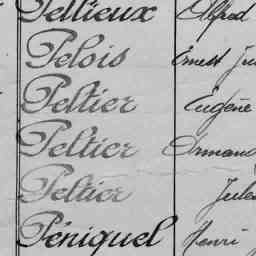 Pellieux Alfred
Pelois Ernest
Peltier Eugène
Peltier Armand
Peltier Jules
Péniquel Henri